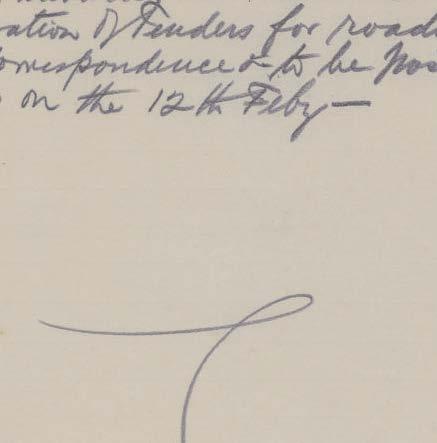 ation of Tenders for road
orrespondence & to be pos
on the 12th Feby —